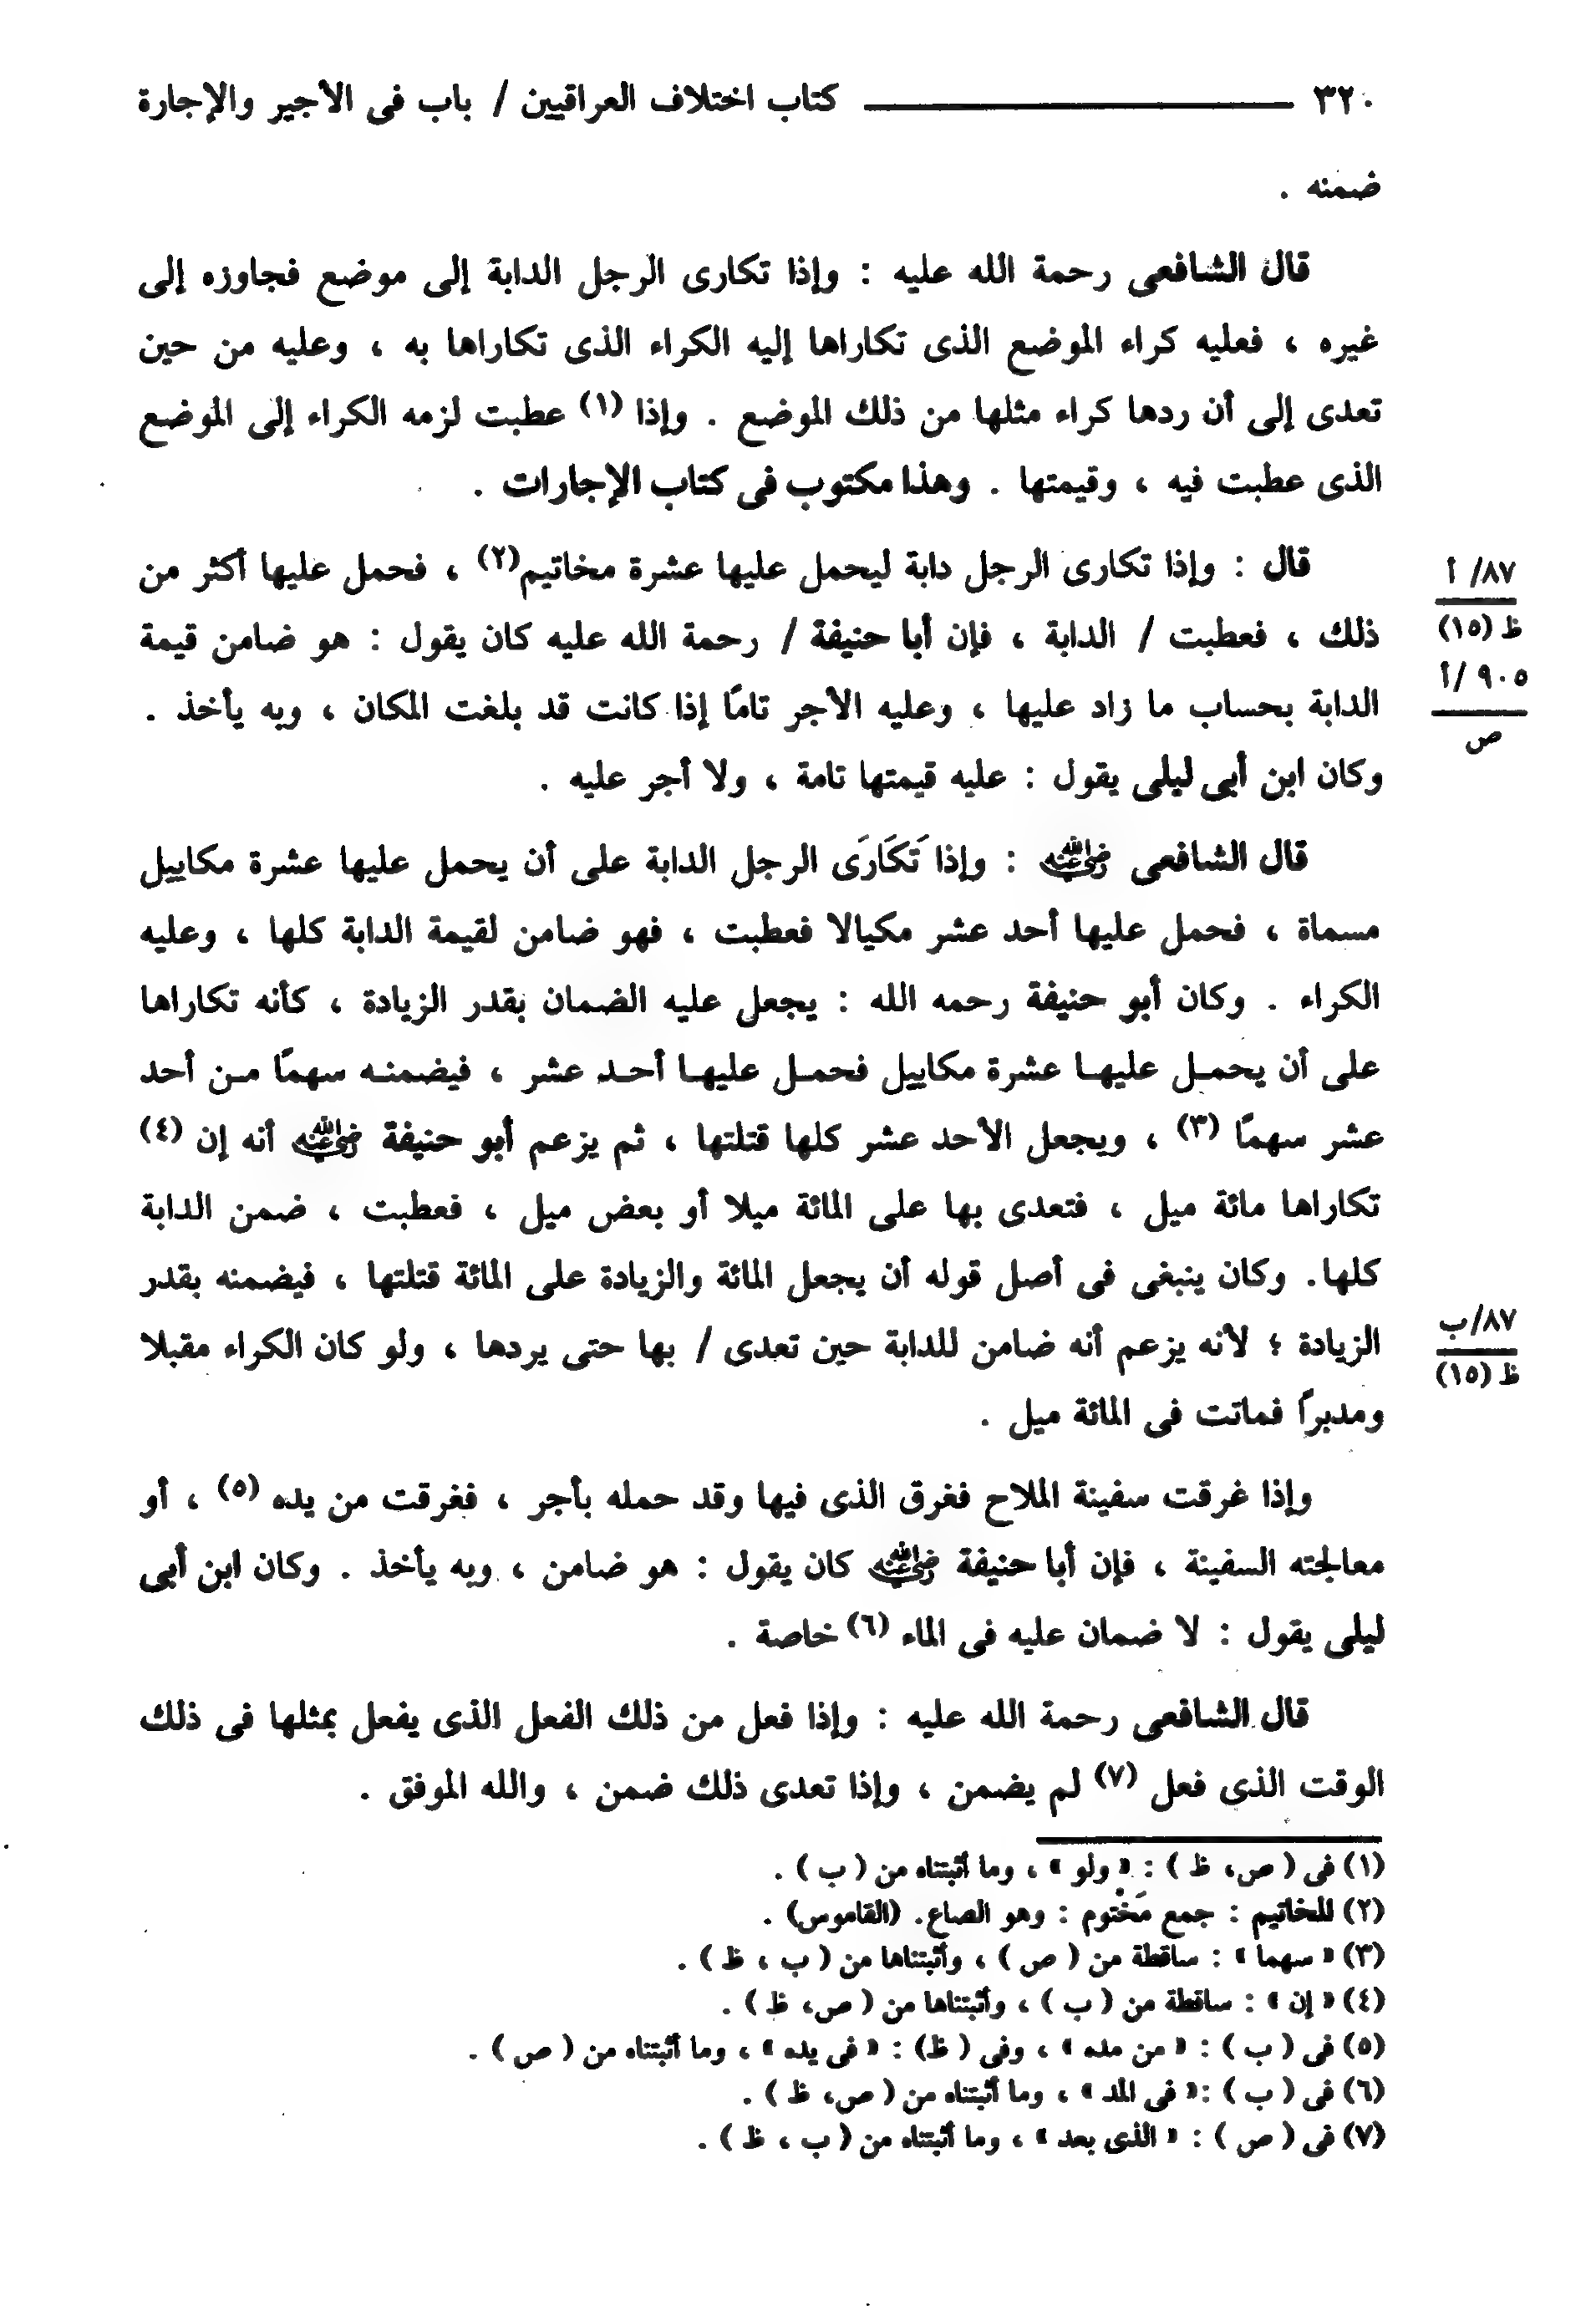 ٣٢٠ كتاب اختلاف العراقيين / باب فى الأجير والإجارة
ضمنه .
قال الشافعى رحمة الله عليه : وإذا تكارى الرجل الدابة إلى موضع فجاوزه إلى
غيره ، فعليه كراء الموضع الذى تكاراها إليه الكراء الذى تكاراها به ، وعليه من حين
تعدى إلى أن ردها كراء مثلها من ذلك الموضع . وإذا (١) عطبت لزمه الكراء إلى الموضع
الذى عطبت فيه ، وقيمتها . وهذا مكتوب فى كتاب الإجارات .
قال : وإذا تكارى الرجل دابة ليحمل عليها عشرة مخاتيم(٢) ، فحمل عليها أكثر من
ذلك ، فعطبت / الدابة ، فإن أبا حنيفة / رحمة الله عليه كان يقول : هو ضامن قيمة
الدابة بحساب ما زاد عليها ، وعليه الأجر تامًا إذا كانت قد بلغت المكان ، وبه يأخذ .
وكان ابن أبى ليلى يقول : عليه قيمتها تامة ، ولا أجر عليه .
٨٧/ أ
ظ (١٥)
٩٠٥ /أ
ص
قال الشافعى رضي الله عنه : وإذا تَكَارَى الرجل الدابة على أن يحمل عليها عشرة مكاييل
مسماة ، فحمل عليها أحد عشر مكيالا فعطبت ، فهو ضامن لقيمة الدابة كلها ، وعليه
الكراء . وكان أبو حنيفة رحمه الله : يجعل عليه الضمان بقدر الزيادة ، كأنه تكاراها
على أن يحمـل عليهـا عشرة مكاييل فحمـل عليهـا أحـد عشر ، فيضمنـه سهمًا مـن أحد
عشر سهمًا (٣) ، ويجعل الأحد عشر كلها قتلتها ، ثم يزعم أبو حنيفة رضي الله عنه أنه إن (٤)
تكاراها مائة ميل ، فتعدى بها على المائة ميلا أو بعض ميل ، فعطبت ، ضمن الدابة
كلها. وكان ينبغى فى أصل قوله أن يجعل المائة والزيادة على المائة قتلتها ، فيضمنه بقدر
الزيادة ؛ لأنه يزعم أنه ضامن للدابة حين تعدى / بها حتى يردها ، ولو كان الكراء مقبلا
ومدبرًا فماتت فى المائة ميل .
٨٧/ب
ظ (١٥)
وإذا غرقت سفينة الملاح فغرق الذى فيها وقد حمله بأجر ، فغرقت من يده (٥) ، أو
معالجته السفينة ، فإن أبا حنيفة رضي الله عنه كان يقول : هو ضامن ، وبه يأخذ . وكان ابن أبى
ليلى يقول : لا ضمان عليه فى الماء (٦) خاصة .
قال الشافعى رحمة الله عليه : وإذا فعل من ذلك الفعل الذى يفعل بمثلها فى ذلك
الوقت الذى فعل (٧) لم يضمن ، وإذا تعدى ذلك ضمن ، والله الموفق .
(١) فى ( ص، ظ ) : « ولو » ، وما أثبتناه من ( ب ) .
(٢) المخاتيم : جمع مَخْتوم : وهو الصاع. (القاموس) .
(٣) « سهما » : ساقطة من ( ص ) ، وأثبتناها من ( ب ، ظ ) .
(٤) « إن » : ساقطة من ( ب ) ، وأثبتناها من ( ص، ظ ) .
(٥) فى ( ب ) : « من مده » ، وفى ( ظ) : « فى يده » ، وما أثبتناه من ( ص ) .
(٦) فى ( ب ) :« فى المد » ، وما أثبتناه من ( ص، ظ ) .
(٧) فى ( ص ) : « الذى بعد » ، وما أثبتناه من ( ب ، ظ ) .